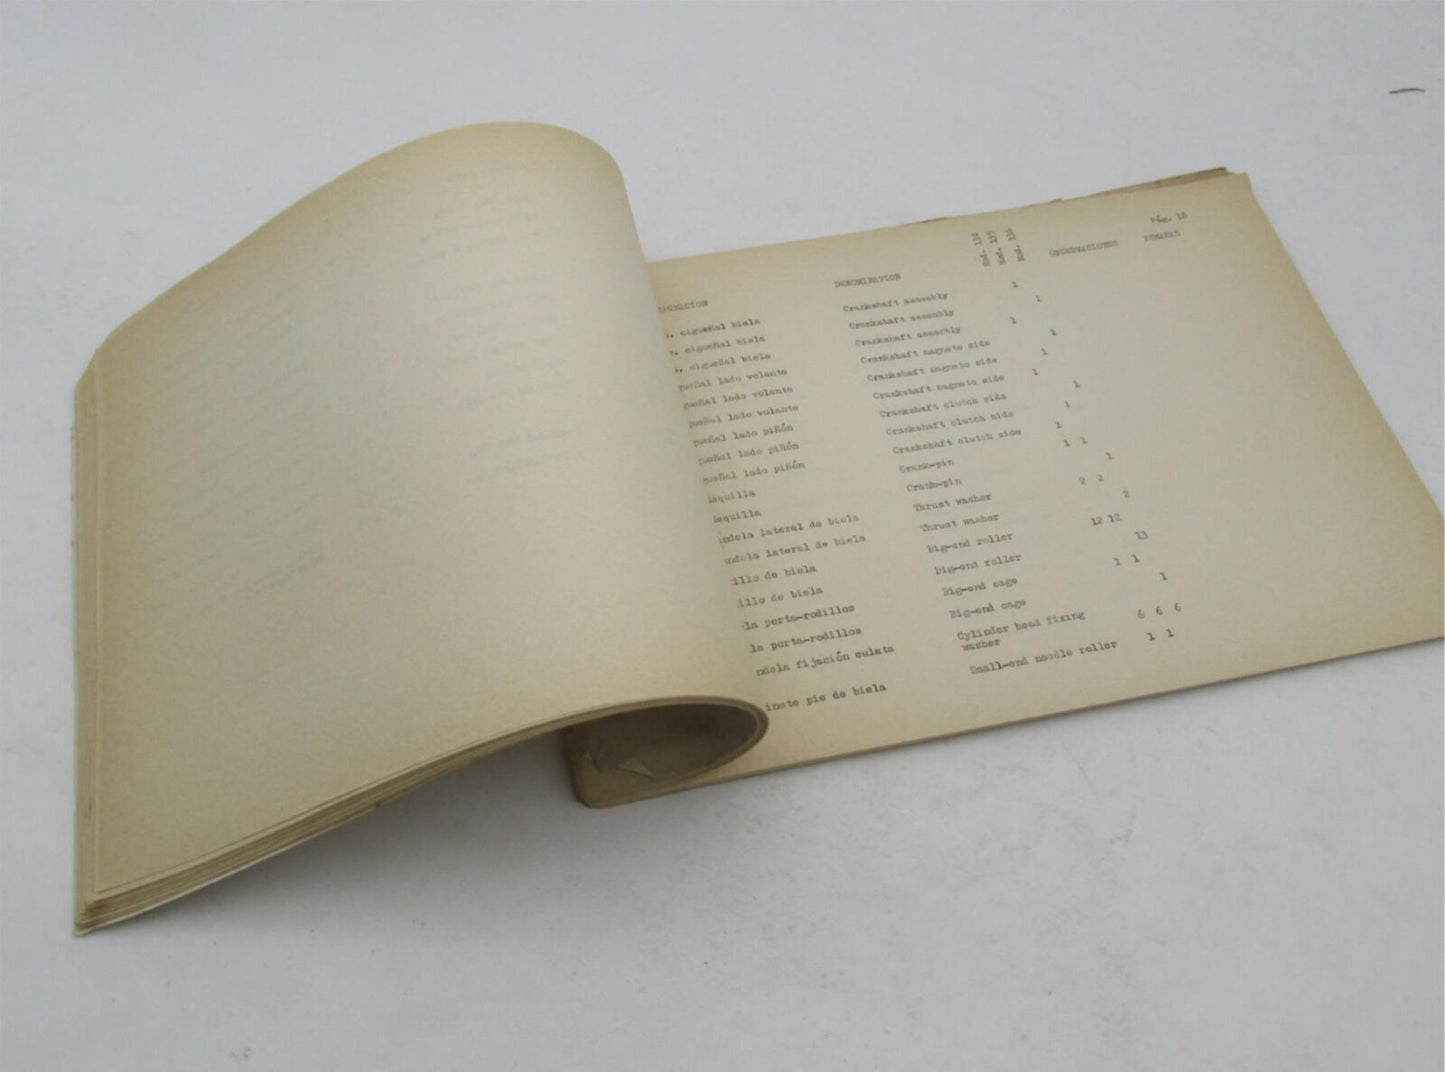 Pág. 18
DENOMINATION Mod. 134 Mod. 135 Mod. 136 OBSERVACIONES REMARKS
cigueñal biela Crankshaft assembly 1
cigueñal biela Crankshaft assembly 1
cigueñal biela Crankshaft assembly 1
gueñal lado volante Crankshaft magneto side 1
gueñal lado volante Crankshaft magneto side 1
gueñal lado volante Crankshaft magneto side 1
gueñal lado piñón Crankshaft clutch side 1
gueñal lado piñón Crankshaft clutch side 1
gueñal lado piñón Crankshaft clutch side 1
equilla Crank-pin 1 1
equilla Crank-pin 1
ndela lateral de biela Thrust washer 2 2
ndela lateral de biela Thrust washer 2
illo de biela Big-end roller 12 12
illo de biela Big-end roller 13
la porta-rodillos Big-end cage 1 1
la porta-rodillos Big-end cage 1
ndela fijación culata Cylinder head fixing
washer 6 6 6
inete pie de biela Small-end needle roller 1 1